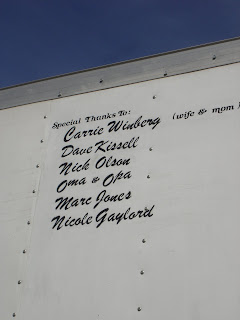 Special Thanks To:
Carrie Winberg (wife & mom)
Dave Kissell
Nick Olson
Oma & Opa
Marc Jones
Nicole Gaylord